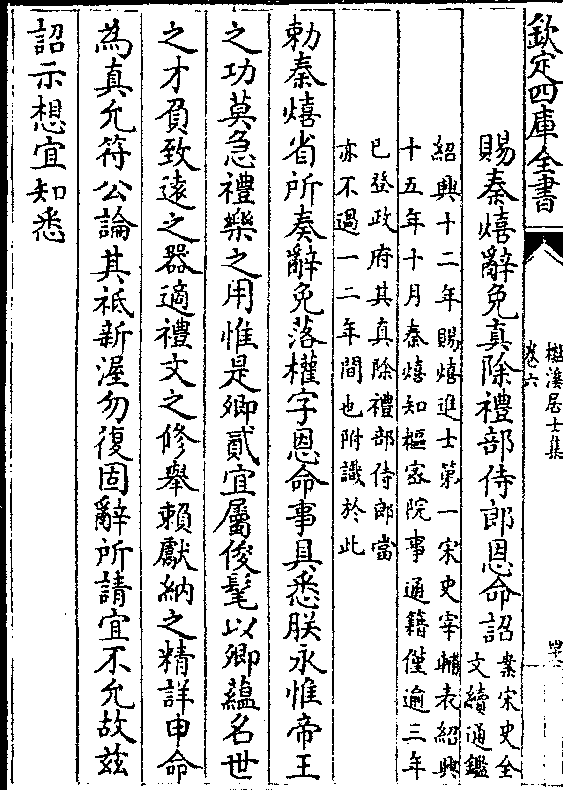 欽定四庫全書
檆溪居士集
卷六
賜秦熺辭免真除禮部侍郎恩命詔
案宋史全
文續通鑑
紹興十二年賜熺進士第一宋史宰輔表紹興
十五年十月秦熺知樞密院事通籍僅逾三年
已登政府其真除禮部侍郎當
亦不過一二年間也附識於此
勅秦熺省所奏辭免落權字恩命事具悉朕永惟帝王
之功莫急禮樂之用惟是卿貳宜屬俊髦以卿蘊名世
之才負致遠之器適禮文之修舉賴獻納之精詳申命
為真允符公論其祗新渥勿復固辭所請宜不允故兹
詔示想宜知悉